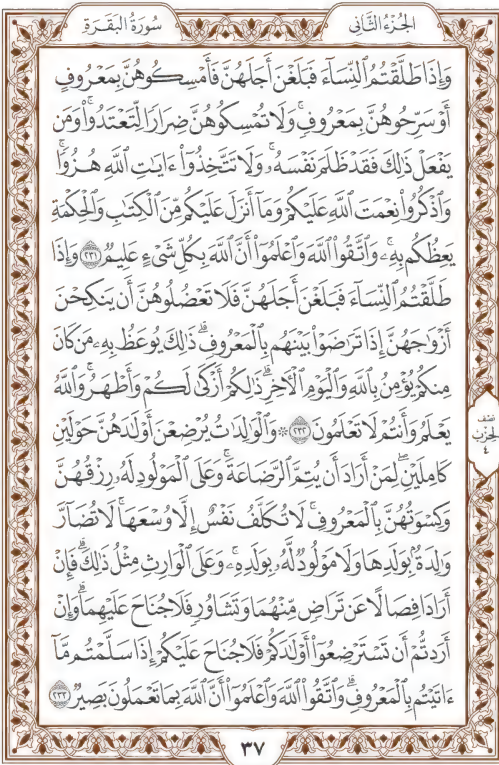 الجُزْءُ الثَّانِي
سُورَةُ البَقَرَةِ
وَإِذَا طَلَّقْتُمُ ٱلنِّسَآءَ فَبَلَغْنَ أَجَلَهُنَّ فَأَمْسِكُوهُنَّ بِمَعْرُوفٍ
أَوْ سَرِّحُوهُنَّ بِمَعْرُوفٖۚ وَلَا تُمْسِكُوهُنَّ ضِرَارٗا لِّتَعْتَدُوا۟ۚ وَمَن
يَفْعَلْ ذَٰلِكَ فَقَدْ ظَلَمَ نَفْسَهُۥۚ وَلَا تَتَّخِذُوٓا۟ ءَايَٰتِ ٱللَّهِ هُزُوٗاۚ
وَٱذْكُرُوا۟ نِعْمَتَ ٱللَّهِ عَلَيْكُمْ وَمَآ أَنزَلَ عَلَيْكُم مِّنَ ٱلْكِتَٰبِ وَٱلْحِكْمَةِ
يَعِظُكُم بِهِۦۚ وَٱتَّقُوا۟ ٱللَّهَ وَٱعْلَمُوٓا۟ أَنَّ ٱللَّهَ بِكُلِّ شَىْءٍ عَلِيمٞ ٢٣١ وَإِذَا
طَلَّقْتُمُ ٱلنِّسَآءَ فَبَلَغْنَ أَجَلَهُنَّ فَلَا تَعْضُلُوهُنَّ أَن يَنكِحْنَ
أَزْوَٰجَهُنَّ إِذَا تَرَٰضَوْا۟ بَيْنَهُم بِٱلْمَعْرُوفِۗ ذَٰلِكَ يُوعَظُ بِهِۦ مَن كَانَ
مِنكُمْ يُؤْمِنُ بِٱللَّهِ وَٱلْيَوْمِ ٱلْـَٔاخِرِۗ ذَٰلِكُمْ أَزْكَىٰ لَكُمْ وَأَطْهَرُۚ وَٱللَّهُ
يَعْلَمُ وَأَنتُمْ لَا تَعْلَمُونَ ٢٣٢ ۞ وَٱلْوَٰلِدَٰتُ يُرْضِعْنَ أَوْلَٰدَهُنَّ حَوْلَيْنِ
كَامِلَيْنِۖ لِمَنْ أَرَادَ أَن يُتِمَّ ٱلرَّضَاعَةَۚ وَعَلَى ٱلْمَوْلُودِ لَهُۥ رِزْقُهُنَّ
وَكِسْوَتُهُنَّ بِٱلْمَعْرُوفِۚ لَا تُكَلَّفُ نَفْسٌ إِلَّا وُسْعَهَاۚ لَا تُضَآرَّ
وَٰلِدَةُۢ بِوَلَدِهَا وَلَا مَوْلُودٞ لَّهُۥ بِوَلَدِهِۦۚ وَعَلَى ٱلْوَارِثِ مِثْلُ ذَٰلِكَۗ فَإِنْ
أَرَادَا فِصَالًا عَن تَرَاضٖ مِّنْهُمَا وَتَشَاوُرٖ فَلَا جُنَاحَ عَلَيْهِمَاۗ وَإِنْ
أَرَدتُّمْ أَن تَسْتَرْضِعُوٓا۟ أَوْلَٰدَكُمْ فَلَا جُنَاحَ عَلَيْكُمْ إِذَا سَلَّمْتُم مَّآ
ءَاتَيْتُم بِٱلْمَعْرُوفِۗ وَٱتَّقُوا۟ ٱللَّهَ وَٱعْلَمُوٓا۟ أَنَّ ٱللَّهَ بِمَا تَعْمَلُونَ بَصِيرٞ ٢٣٣
نصف
الحزب
٤
٣٧